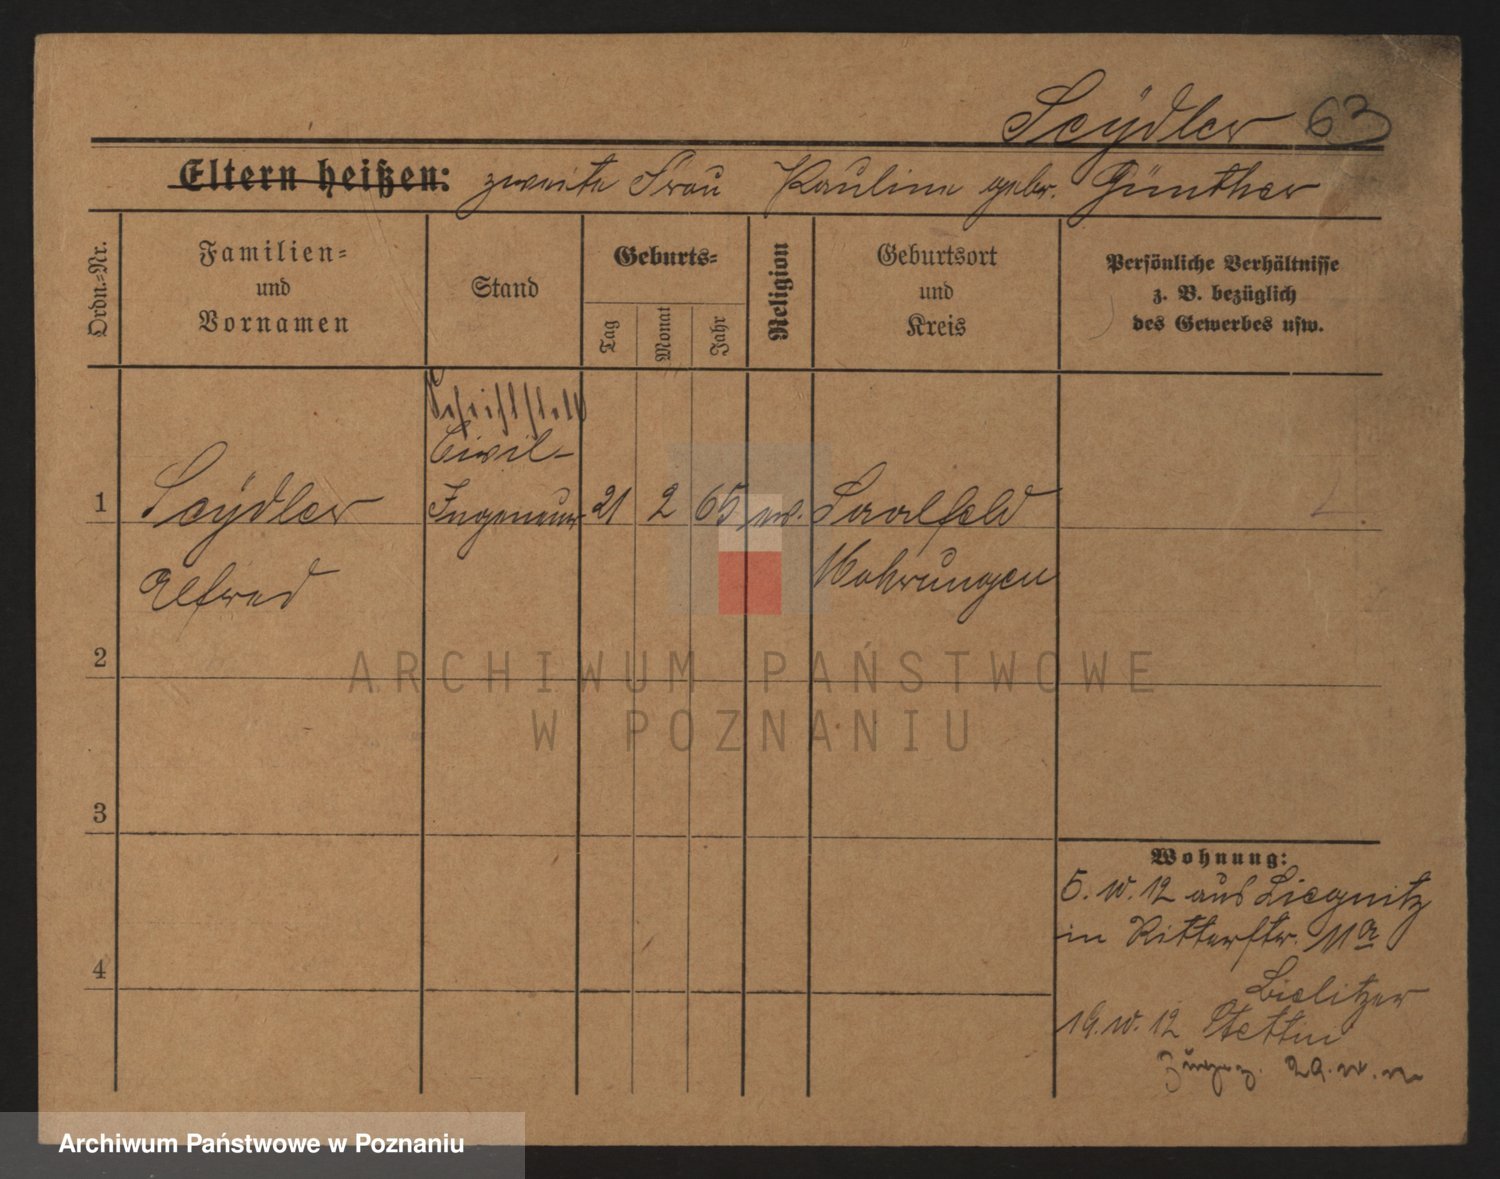 Seydler 63
Eltern heißen: zweite Frau Pauline gebr. Günther
Ordn.-Nr.
Familien-
und
Vornamen
Stand
Geburts-
Tag
Monat
Jahr
Religion
Geburtsort
und
Kreis
Persönliche Verhältnisse
z. B. bezüglich
des Gewerbes usw.
Civil-
1 Seydler Ingeneuer 21 2 65 ev. Saalfeld
Alfred Mohrungen
2
ARCHIWUM PAŃSTWOWE
W POZNANIU
3
Wohnung:
5. IV. 12 aus Liegnitz
in Ritterstr. 11a
4
Bielitzer
19. IV. 12 Stettin
29.
Archiwum Państwowe w Poznaniu